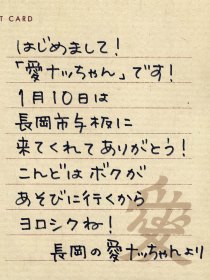 T CARD
はじめまして!
「愛ナッちゃん」です!
1月10日は
長岡市与板に
来てくれてありがとう!
こんどはボクが
あそびに行くから
ヨロシクね!
愛
長岡の愛ナッちゃんより